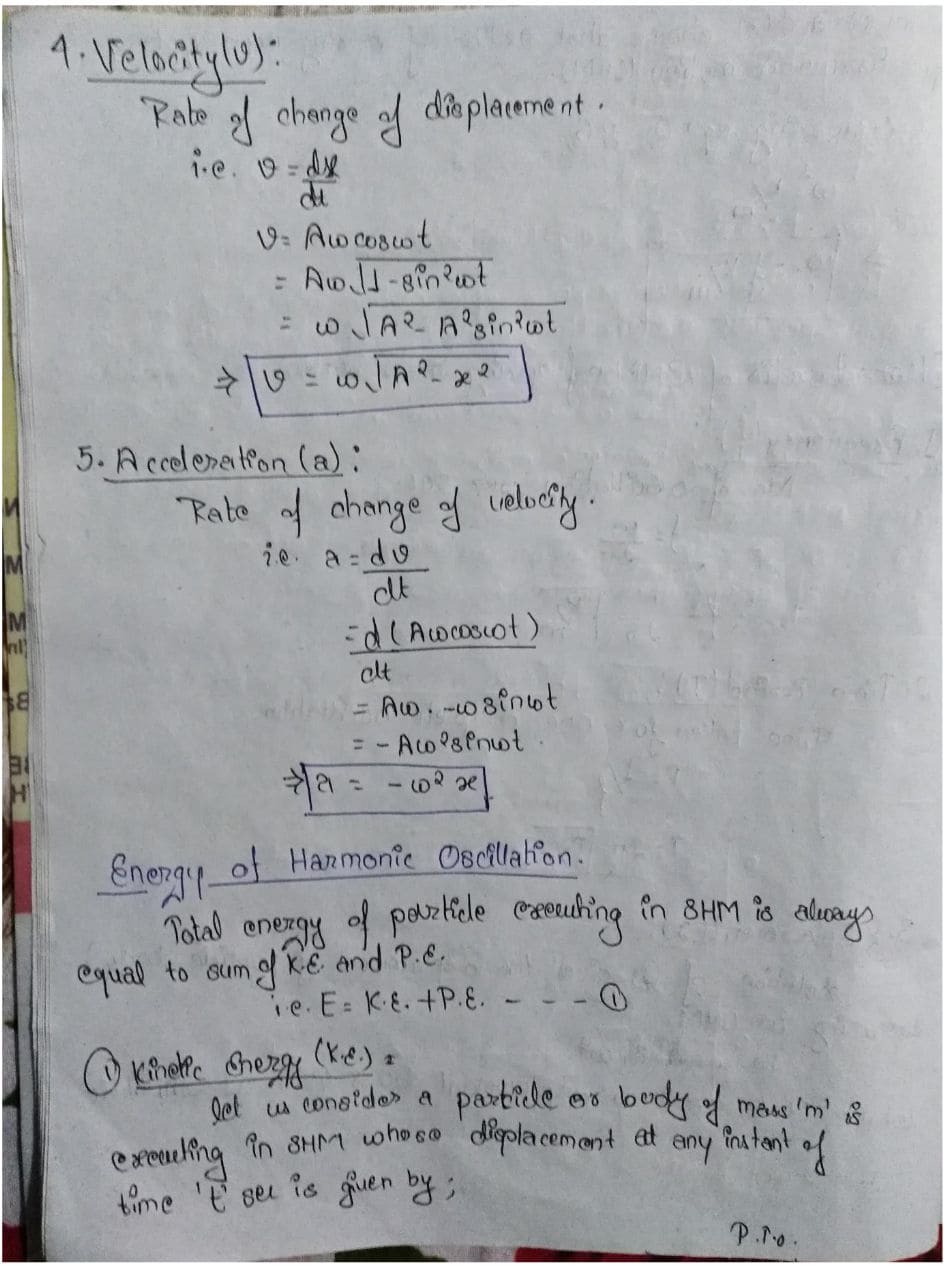 4. Velocity(v):
Rate of change of displacement.
i.e. v = dx/dt
v = Aω cosωt
= Aω√1-sin²ωt
= ω√A²- A²sin²ωt
⇒ v = ω√A²- x²
5. Acceleration (a):
Rate of change of velocity.
i.e. a = dv/dt
= d(Aωcosωt)/dt
= Aω . -ω sinωt
= - Aω²sinωt.
⇒ a = - ω² x
Energy of Harmonic Oscillation.
Total energy of particle executing in SHM is always
equal to sum of K.E. and P.E.
i.e. E = K.E. + P.E. - - - ①
① Kinetic Energy (K.E.) =
let us consider a particle or body of mass 'm' is
executing in SHM whose displacement at any instant of
time 't' sec is given by;
P.T.O.
M
M
38
H